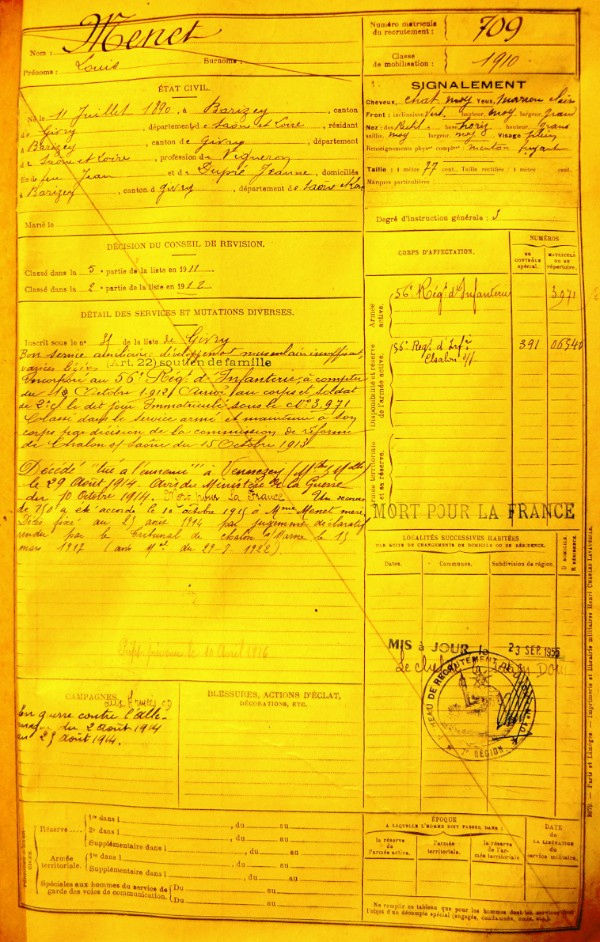 Nom : Menet
Prénoms : Louis Surnoms :
Numéro matricule du recrutement : 709
Classe de mobilisation : 1910
ÉTAT CIVIL.
Né le 11 Juillet 1890, à Barizey, canton
de Givry, département de Saône et Loire, résidant
à Barizey, canton de Givry, département
de Saône et Loire, profession de Vigneron
fils de feu Jean et de Dupré Jeanne, domiciliés
à Barizey, canton d Givry, département de Saône et Loire
Marié le
SIGNALEMENT
Cheveux, chat. moy Yeux, marron
Front : inclinaison Vert. hauteur, moy largeur, gran
Nez : dos hauteur,
saillie, moy largeur, moy Visage plein
Renseignements physion. complém. menton fuyant
Taille : 1 mètre 77 cent. Taille rectifiée : 1 mètre cent.
Marques particulières :
Degré d'instruction générale : 3
DÉCISION DU CONSEIL DE RÉVISION.
Classé dans la 5e partie de la liste en 1911
Classé dans la 2e partie de la liste en 1912
DÉTAIL DES SERVICES ET MUTATIONS DIVERSES.
Inscrit sous le n° de la liste de Givry
Bon service auxiliaire développement musculaire insuffisant,
(Art. 22) soutien de famille
Incorporé au 56e Régt d'Infanterie à compter
du Octobre 1912 Arrivé au corps et soldat
de 2e cl le dit jour Immatriculé sous le N° 3.971
Classé dans le service armé et maintenu à son
corps par décision de la commission de réforme
de Chalon s/ Saône du 15 Octobre 1913
Décédé "tué à l'ennemi" à
le 29 Août 1914. Avis du Ministère de la Guerre
du 10 Octobre 1914. Mort pour la France. Un secours
de 150f a été accordé le 10 octobre 1915 à Mme Menet mère
Décès fixé au 29 août 1914 par jugement déclaratif
rendu par le tribunal de Chalon le 15
mars 1917
CORPS D'AFFECTATION.
NUMÉROS
AU CONTRÔLE spécial.
MATRICULE OU AU RÉPERTOIRE.
Armée active.
56e Régt d'Infanterie 3971
Disponibilité et réserve de l'armée active.
56e Régt d'Infie Chalon s/s 391
Armée territoriale et sa réserve.
MORT POUR LA FRANCE
LOCALITÉS SUCCESSIVES HABITÉES
PAR SUITE DE CHANGEMENTS DE DOMICILE OU DE RÉSIDENCE.
Dates. Communes. Subdivision de région. D. DOMICILE. R. RÉSIDENCE.
MIS à JOUR le 23 SEP. 1955
BUREAU DE RECRUTEMENT
7e RÉGION
CAMPAGNES.
En guerre contre l'Alle-
magne du 2 août 1914
au 29 août 1914.
BLESSURES, ACTIONS D'ÉCLAT,
DÉCORATIONS, ETC.
Réserve
1re dans l , du au
2e dans l , du au
Supplémentaire dans l , du au
Armée territoriale.
1re dans l , du au
Supplémentaire dans l , du au
Spéciales aux hommes du service de garde des voies de communication.
Du au
Du au
ÉPOQUE
À LAQUELLE L'HOMME DOIT PASSER DANS :
la réserve de l'armée active.
l'armée territoriale.
la réserve de l'armée territoriale.
DATE
DE LA LIBÉRATION
du service militaire.
Ne remplir ce tableau que pour les hommes dont les services font
l'objet d'un décompte spécial (engagés, condamnés, omis, etc.).
Paris et Limoges. — Imprimerie et librairie militaires Henri Charles-Lavauzelle.